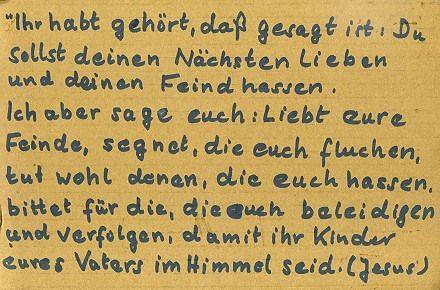 "Ihr habt gehört, daß gesagt ist: Du
sollst deinen Nächsten lieben
und deinen Feind hassen.
Ich aber sage euch: Liebt eure
Feinde, segnet, die euch fluchen,
tut wohl denen, die euch hassen,
bittet für die, die euch beleidigen
und verfolgen, damit ihr Kinder
eures Vaters im Himmel seid. (Jesus)